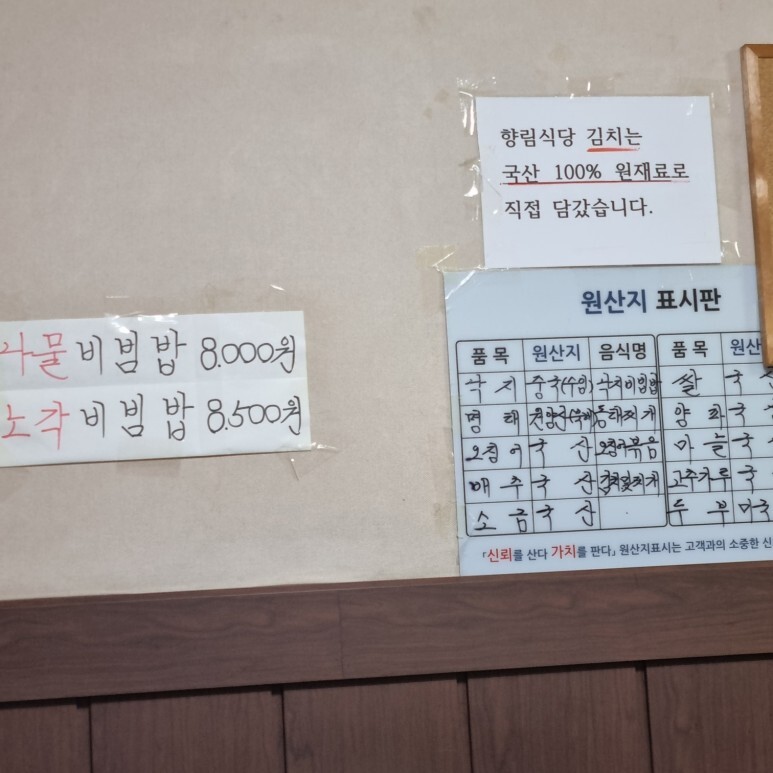 향림식당 김치는
국산 100% 원재료로
직접 담갔습니다.
나물비빔밥 8.000원
노각비빔밥 8.500원
원산지 표시판
품 목 원산지 음식명 품 목 원산
낙 지 중국(수입) 낙지비빔밥 쌀 국
명 태 동태찌개 양 파 국
오징어 국 산 오징어볶음 마 늘 국
배 추 국 산 고추가루 국
소 금 국 산 두 부 미국
「신뢰를 산다 가치를 판다」 원산지표시는 고객과의 소중한 신